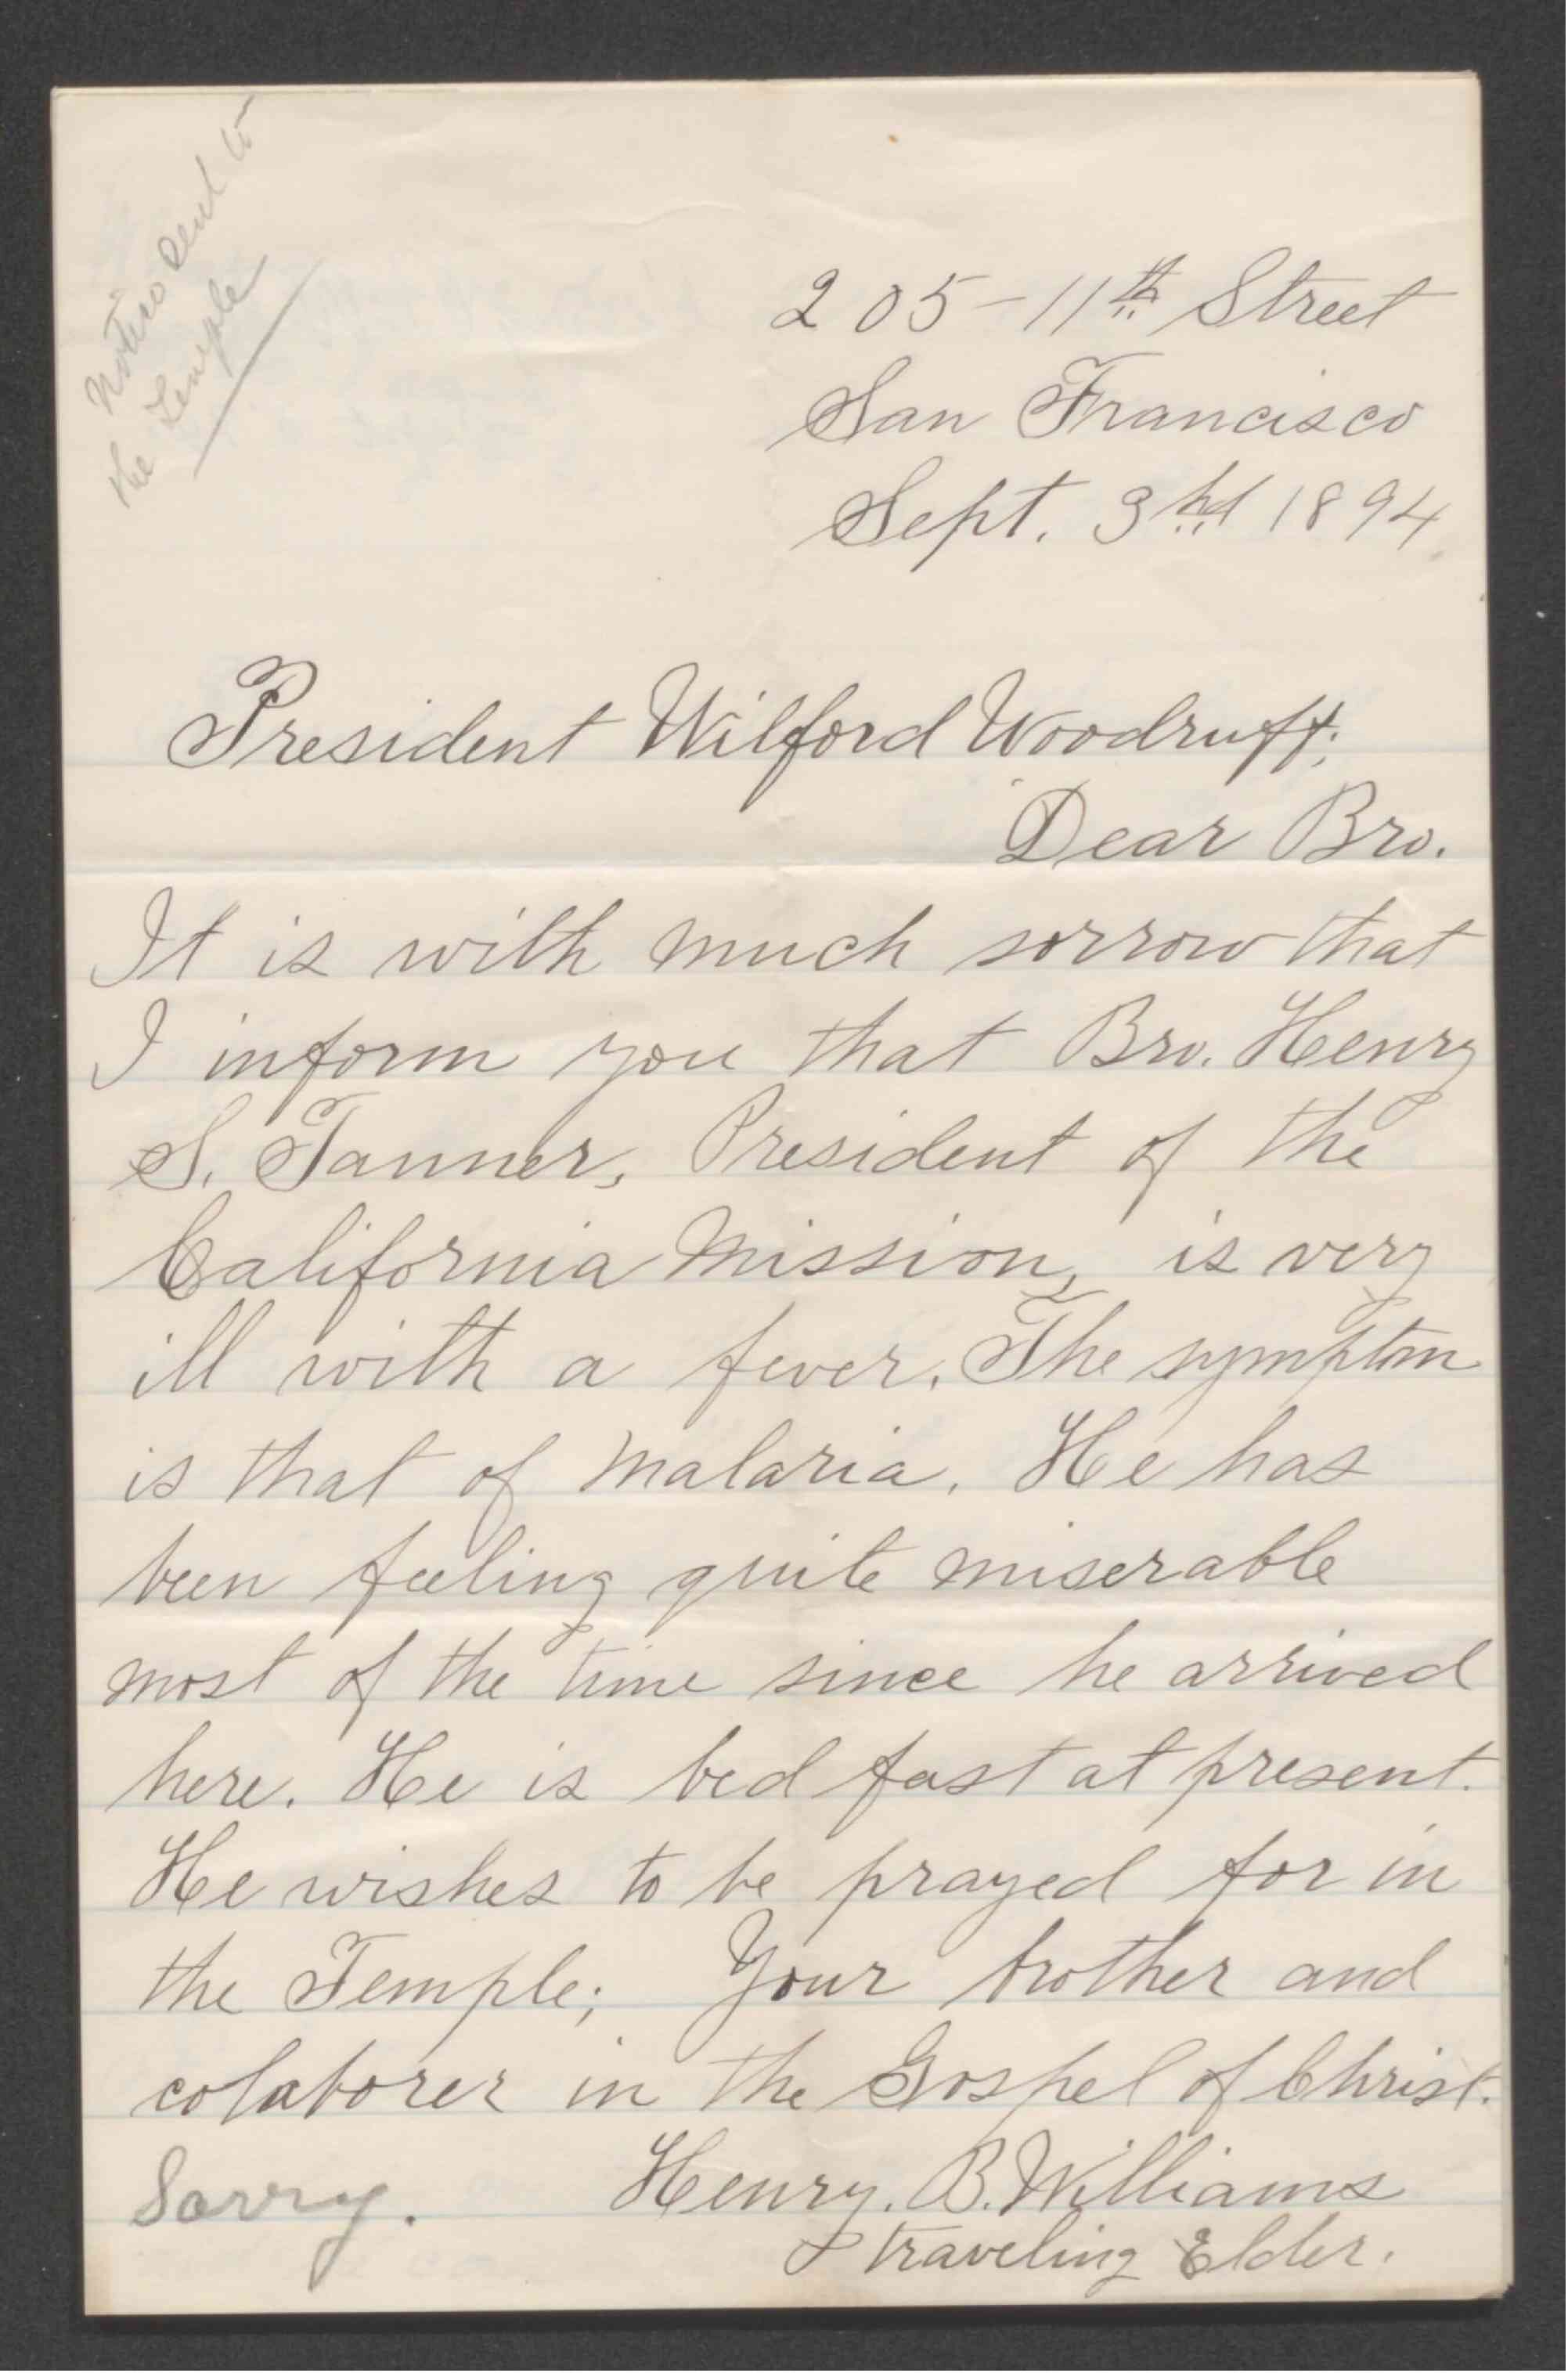 Notice sent to
the Temple
205-11th Street
San Francisco
Sept. 3rd 1894
President Wilford Woodruff;
Dear Bro.
It is with much sorrow that
I inform you that Bro. Henry
S. Tanner, President of the
California Mission, is very
ill with a fever. The symptom
is that of malaria. He has
been feeling quite miserable
most of the time since he arrived
here. He is bed fast at present.
He wishes to be prayed for in
the Temple; Your brother and
colaborer in the Gospel of Christ.
Sorry. Henry. B. Williams
traveling Elder.